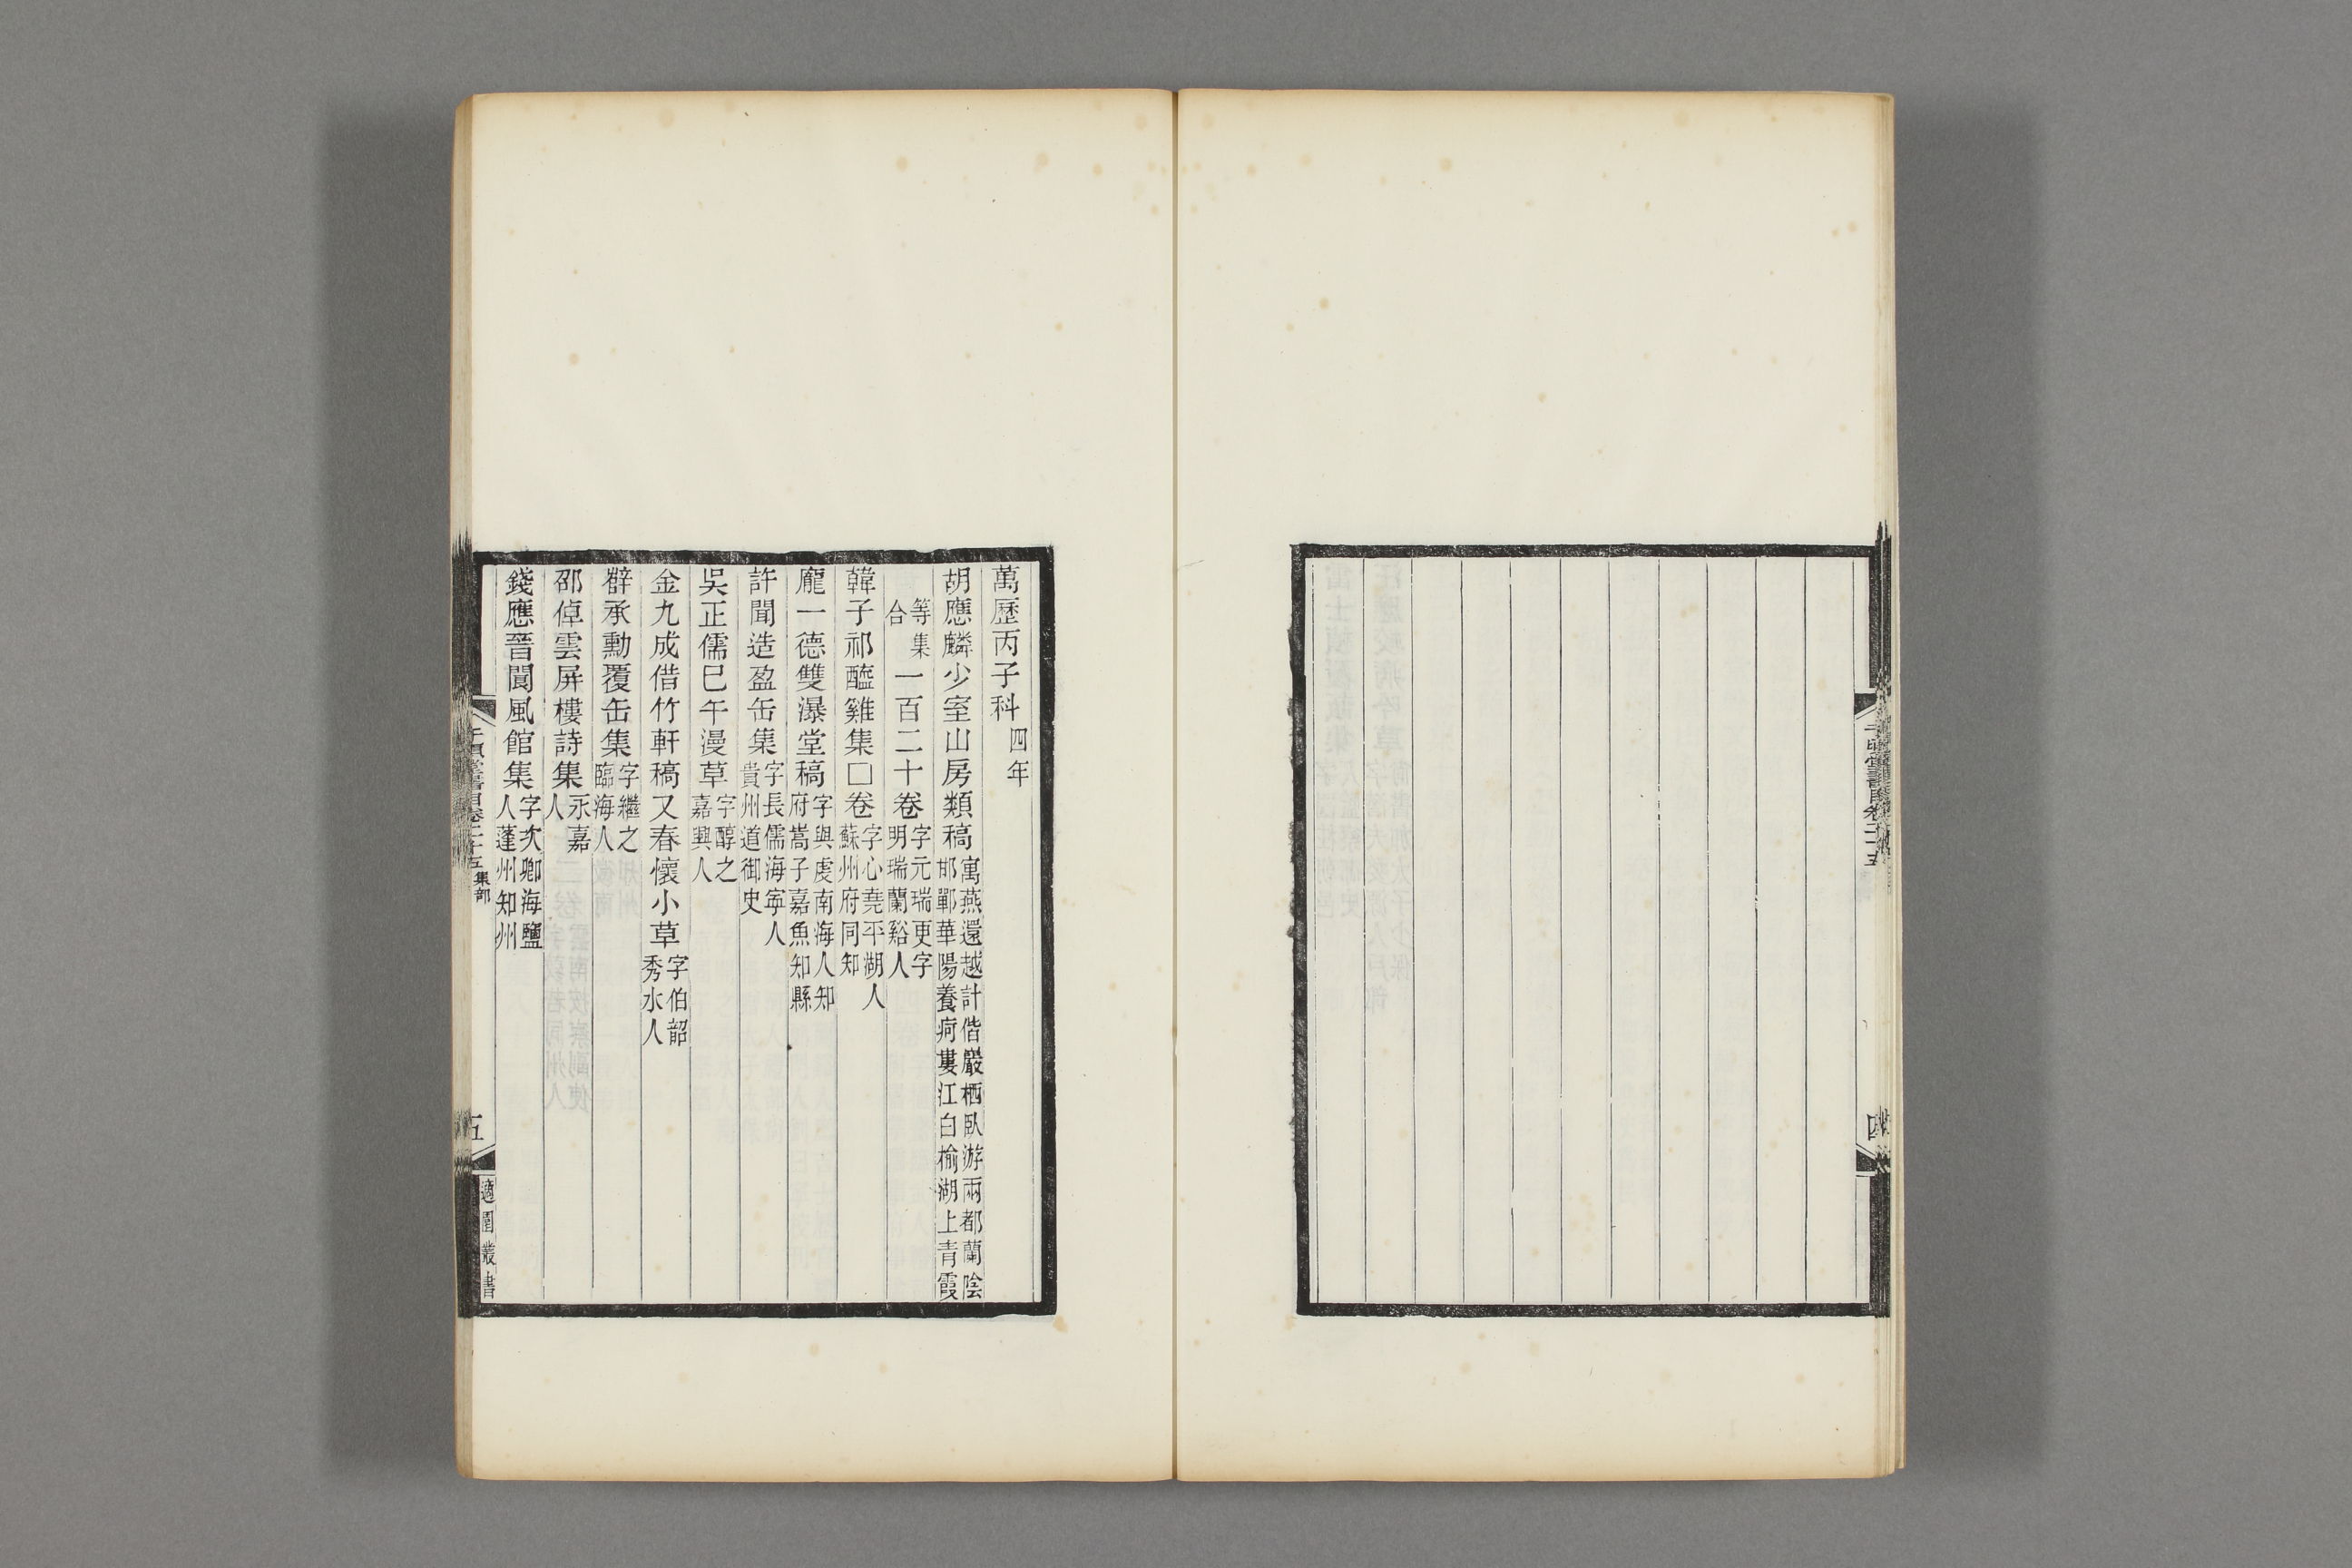 千頃堂書目卷二十五
四
萬歷丙子科四年
胡應麟少室山房類稿寓燕還越計偕巖栖臥游兩都蘭陰邯鄲華陽養疴婁江白榆湖上青霞
等集合一百二十卷字元瑞更字明瑞蘭谿人
韓子祁醯雞集□卷字心堯平湖人蘇州府同知
龐一德雙瀑堂稿字與虔南海人知府嵩子嘉魚知縣
許聞造盈缶集字長儒海寧人貴州道御史
吳正儒巳午漫草字醇之嘉興人
金九成借竹軒稿又春懷小草字伯韶秀水人
承勳覆缶集字繼之臨海人
邵倬雲屏樓詩集永嘉人
錢應晉閬風館集字次卿海鹽人蓬州知州
千頃堂書目卷二十五集部
五
適園叢書